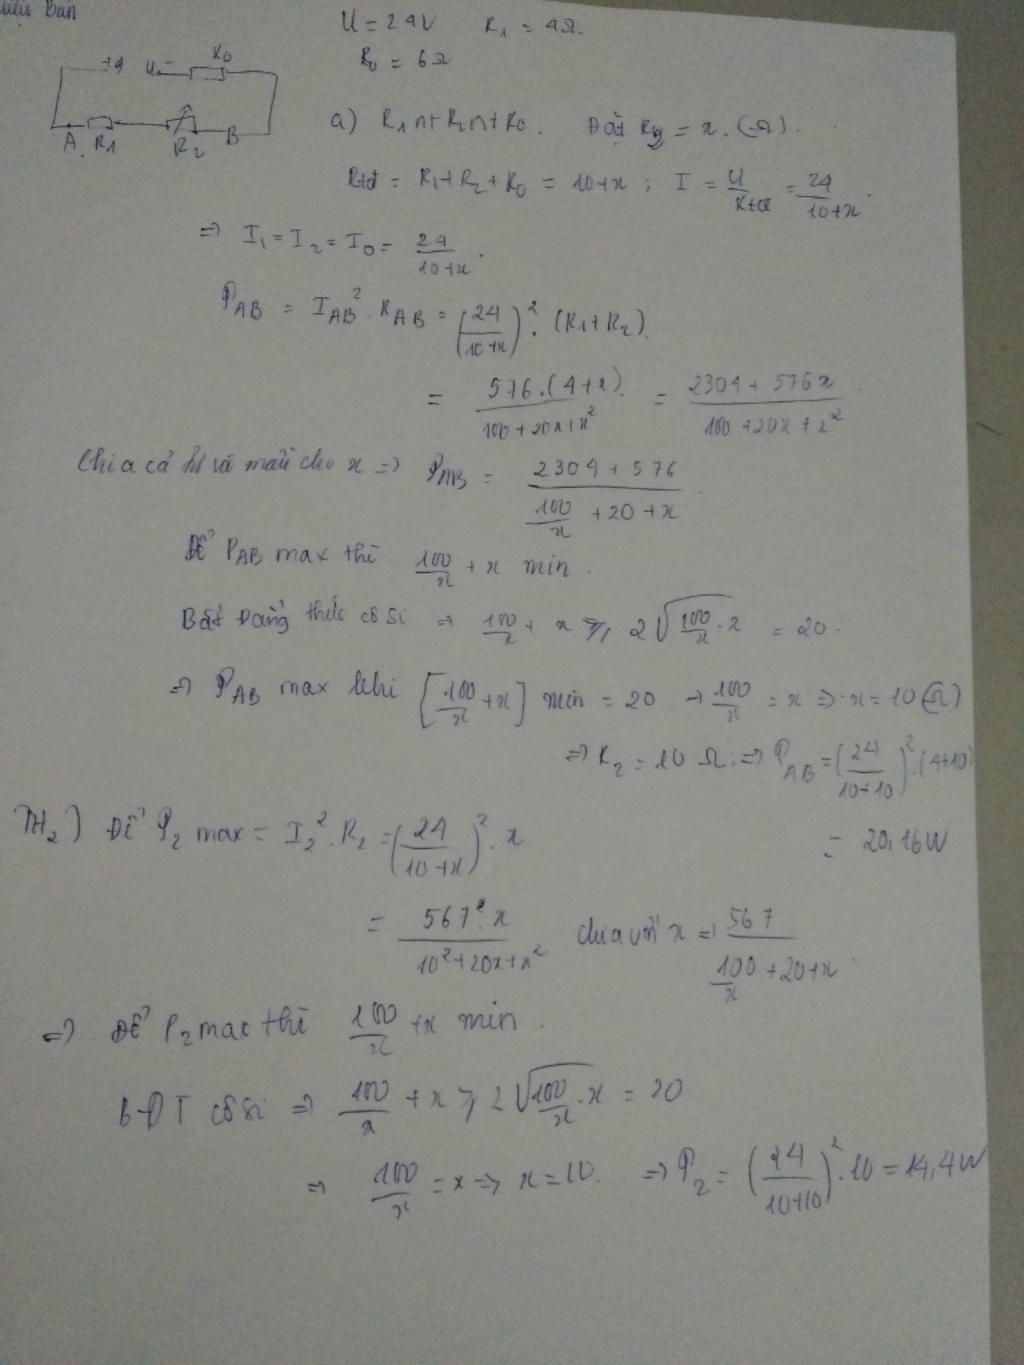 Bản
U = 24V R₁ = 4Ω.
R₀ = 6Ω
+ U - R₀
A R1 R2 B
a) R₁ nt R₂ nt R₀. Đặt R₂ = x. (Ω).
Rtđ = R₁ + R₂ + R₀ = 10 + x ; I = U/Rtđ = 24/(10+x).
=> I₁ = I₂ = I₀ = 24/(10+x).
P_AB = I_AB². R_AB = (24/(10+x))². (R₁+R₂).
= 576.(4+x)/(100+20x+x²) = (2304 + 576x)/(100+20x+x²).
Chia cả tử và mẫu cho x => P_AB = (2304 + 576)/(100/x + 20 + x).
Để P_AB max thì 100/x + x min.
Bất Đẳng thức cô si => 100/x + x ≥ 2√(100/x . x) = 20.
=> P_AB max khi [100/x + x] min = 20 → 100/x = x => x = 10 (Ω)
=> R₂ = 10 Ω. => P_AB = (24/(10+10))².(4+10)
= 20,16W
TH₂) Để P₂ max = I₂². R₂ = (24/(10+x))². x
= 567². x/(10²+20x+x²) chia với x => 567/(100/x + 20 + x).
=> Để P₂ max thì 100/x + x min.
BĐT cô si => 100/x + x ≥ 2√(100/x . x) = 20
=> 100/x = x => x = 10. => P₂ = (24/(10+10))². 10 = 14,4W